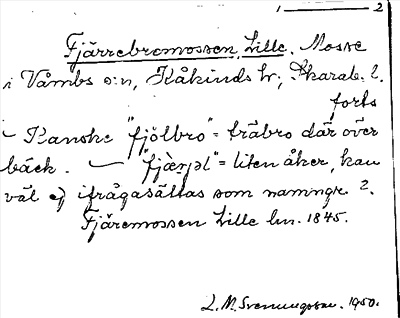 1 — 2
Fjärrebromossen, Lille. Mosse
i Våmbs s:n, Kåkinds hr, Skarab. l.
forts
— Kanske "fjölbro" = träbro där över
bäck. — "fjærəl" = liten åker, kan
väl ej ifrågasättas som namngr. ?.
Fjäremossen Lille hn. 1845.
L. M. Svenungsson. 1950.